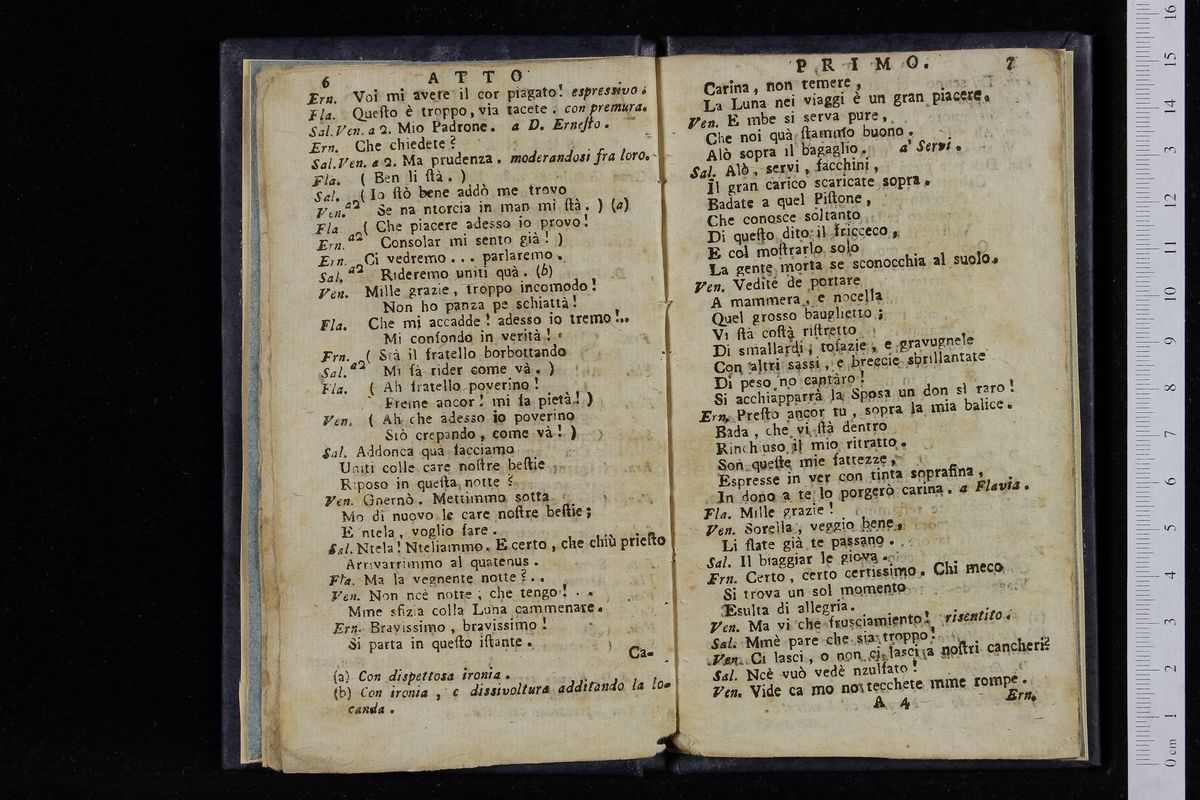 6 ATTO
Ern. Voi mi avete il cor piagato! espressivo.
Fla. Queſto è troppo, via tacete. con premura.
Sal. Ven. a 2. Mio Padrone. a D. Erneſto.
Ern. Che chiedete?
Sal. Ven. a 2. Ma prudenza. moderandosi fra loro.
Fla. ( Ben li ſtà. )
Sal. ( Io ſtò bene addò me trovo
Ven. a2 Se na ntorcia in man mi ſtà. ) (a)
Fla. ( Che piacere adesso io provo!
Ern. a2 Consolar mi sento già! )
Ern. Ci vedremo... parlaremo.
Sal. a2 Rideremo uniti quà. (b)
Ven. Mille grazie, troppo incomodo!
Non ho panza pe schiattà!
Fla. Che mi accadde! adesso io tremo!..
Mi confondo in verità!
Ern. ( Stà il fratello borbottando
Sal. a2 Mi fà rider come và. )
Fla. ( Ah fratello poverino!
Freme ancor! mi fa pietà! )
Ven. ( Ah che adesso io poverino
Stò crepando, come và! )
Sal. Addonca quà facciamo
Uniti colle care noſtre beſtie
Riposo in queſta notte?
Ven. Gnernò. Mettimmo sotta
Mo di nuovo le care noſtre beſtie;
E ntela, voglio fare.
Sal. Ntela! Nteliammo. E certo, che chiù prieſto
Arrivarrimmo al quatenus.
Fla. Ma la vegnente notte?..
Ven. Non ncè notte, che tengo!..
Mme sfizia colla Luna cammenare.
Ern. Bravissimo, bravissimo!
Si parta in queſto iſtante.
Ca-
(a) Con dispettosa ironia.
(b) Con ironia, e dissivoltura additando la lo-
canda.
PRIMO. 7
Carina, non temere,
La Luna nei viaggi è un gran piacere.
Ven. E mbe si serva pure,
Che noi quà ſtammo buono.
Alò sopra il bagaglio. a' Servi.
Sal. Alò, servi, facchini,
Il gran carico scaricate sopra.
Badate a quel Piſtone,
Che conosce soltanto
Di queſto dito il fricceco,
E col moſtrarlo solo
La gente morta se sconocchia al suolo.
Ven. Vedite de portare
A mammera, e nocella
Quel grosso baughetto;
Vi ſtà coſtà riſtretto
Di smallardi, tofazie, e gravugnele
Con altri sassi, e breccie sbrillantate
Di peso no cantàro!
Si acchiapparrà la Sposa un don sì raro!
Ern. Preſto ancor tu, sopra la mia balice.
Bada, che vi ſtà dentro
Rinchiuso il mio ritratto.
Son queſte mie fattezze,
Espresse in ver con tinta soprafina,
In dono a te lo porgerò carina. a Flavia.
Fla. Mille grazie!
Ven. Sorella, veggio bene,
Li flate già te passano.
Sal. Il biaggiar le giova.
Ern. Certo, certo certissimo. Chi meco
Si trova un sol momento
Esulta di allegria.
Ven. Ma vi che frusciamiento! risentito.
Sal. Mmè pare che sia troppo!
Ven. Ci lasci, o non ci lasci a noſtri cancheri?
Sal. Ncè vuò vedè nzulfato!
Ven. Vide ca mo no tecchete mme rompe.
A 4 Ern.